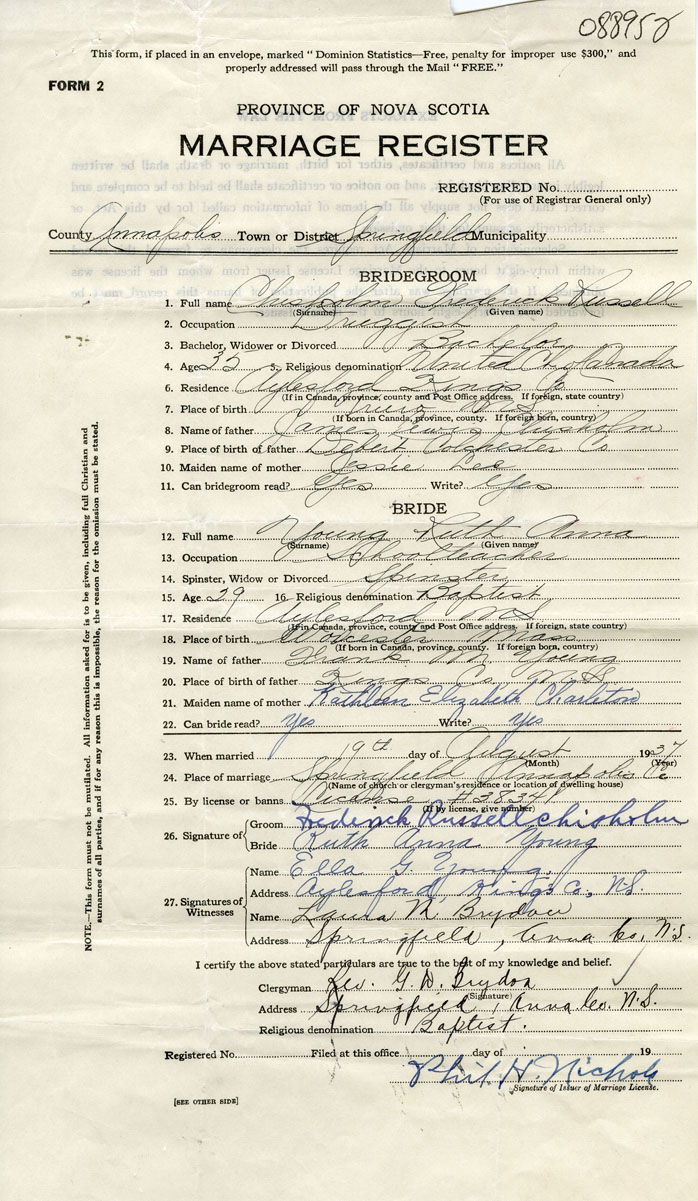 088952
This form, if placed in an envelope, marked "Dominion Statistics—Free, penalty for improper use $300," and
properly addressed will pass through the Mail "FREE."
FORM 2
PROVINCE OF NOVA SCOTIA
MARRIAGE REGISTER
REGISTERED No.
(For use of Registrar General only)
County Annapolis Town or District Springfield Municipality
BRIDEGROOM
1. Full name Chisholm Frederick Russell
(Surname) (Given name)
2. Occupation Druggist
3. Bachelor, Widower or Divorced Bachelor
4. Age 33 5. Religious denomination United Ch of Canada
6. Residence Aylesford Kings Co
(If in Canada, province, county and Post Office address. If foreign, state country)
7. Place of birth
(If born in Canada, province, county. If foreign born, country)
8. Name of father James Chisholm
9. Place of birth of father Debert Colchester Co
10. Maiden name of mother Lee
11. Can bridegroom read? Yes Write? Yes
BRIDE
12. Full name Young Ruth Anna
(Surname) (Given name)
13. Occupation Schoolteacher
14. Spinster, Widow or Divorced Spinster
15. Age 29 16. Religious denomination Baptist
17. Residence Aylesford N.S
(If in Canada, province, county and Post Office address. If foreign, state country)
18. Place of birth Worcester Mass
(If born in Canada, province, county. If foreign born, country)
19. Name of father Frank M. Young
20. Place of birth of father Kings Co. N.S.
21. Maiden name of mother Kathleen Elizabeth Charlton
22. Can bride read? Yes Write? yes
23. When married 19th day of August 1937
(Month) (Year)
24. Place of marriage Springfield Annapolis Co
(Name of church or clergyman's residence or location of dwelling house)
25. By license or banns License
(If by license, give number)
26. Signature of Groom Frederick Russell Chisholm
Bride Ruth Anna Young
27. Signatures of Witnesses
Name Ella G. Young.
Address Aylesford, Kings Co, N.S.
Name Laura M Brydon
Address Springfield, Anna Co, N.S.
I certify the above stated particulars are true to the best of my knowledge and belief.
Clergyman Rev. G. D. Brydon
(Signature)
Address Springfield, Anna Co. N.S.
Religious denomination Baptist.
Registered No. Filed at this office day of 19
Phil. H. Nichols
Signature of Issuer of Marriage License.
[SEE OTHER SIDE]
NOTE.—This form must not be mutilated. All information asked for is to be given, including full Christian and
surnames of all parties, and if for any reason this is impossible, the reason for the omission must be stated.